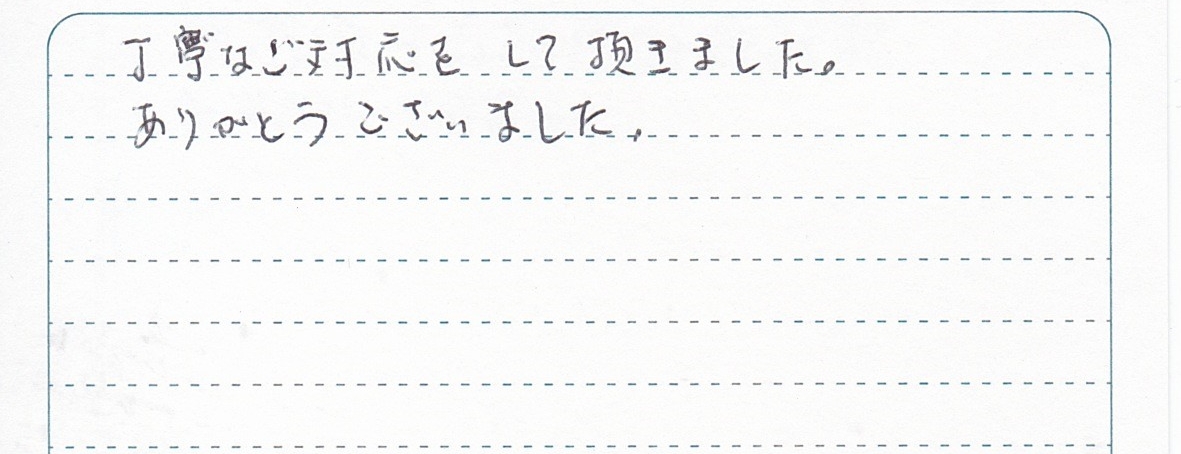 丁寧なご対応をして頂きました。
ありがとうございました。